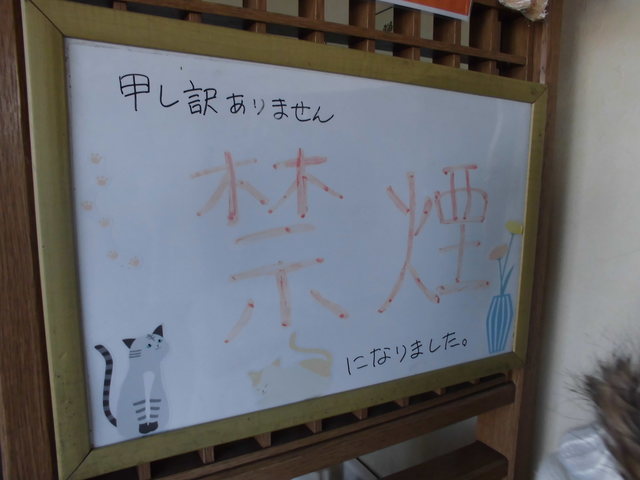 申し訳ありません
禁煙
になりました。